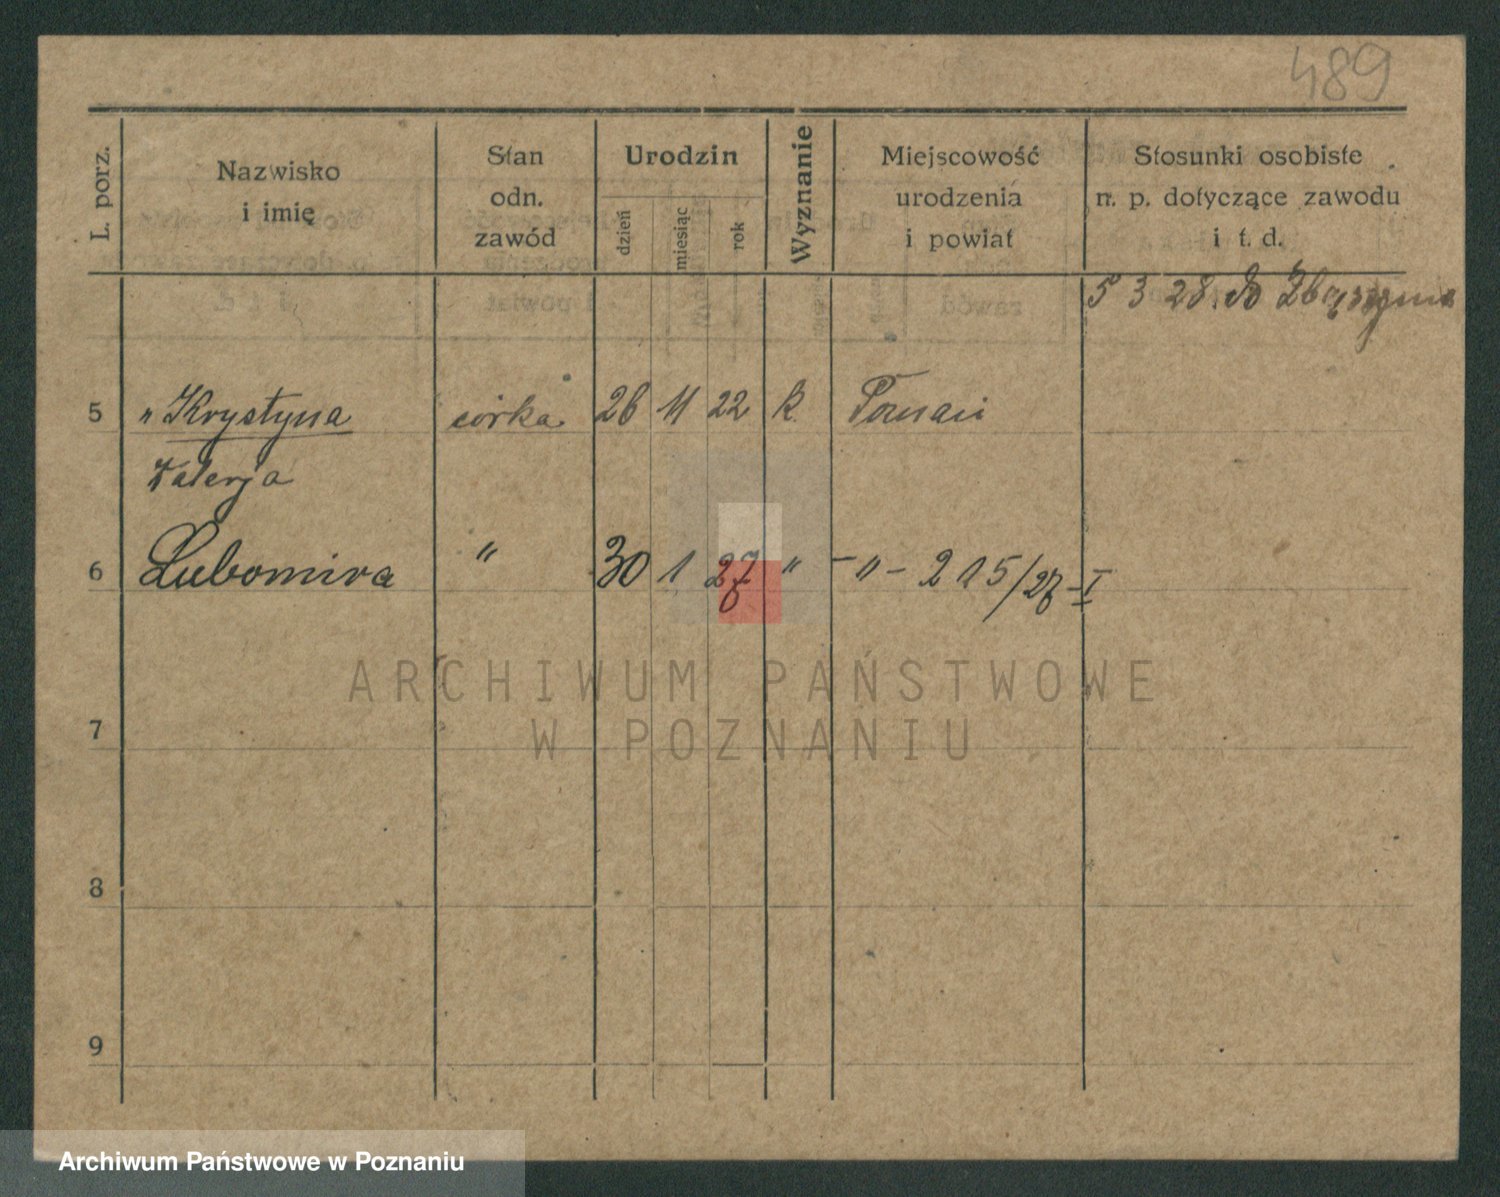 489
L. porz.
Nazwisko
i imię
Stan
odn.
zawód
Urodzin
dzień
miesiąc
rok
Wyznanie
Miejscowość
urodzenia
i powiat
Stosunki osobiste
n. p. dotyczące zawodu
i t. d.
5 3 28. do Zbąszynia
5 „ Krystyna córka 26 11 22 k. Poznań
Walerja
6 Lubomira " 30 1 27 " -"- 215/27 I
7
8
9
ARCHIWUM PAŃSTWOWE
W POZNANIU
Archiwum Państwowe w Poznaniu